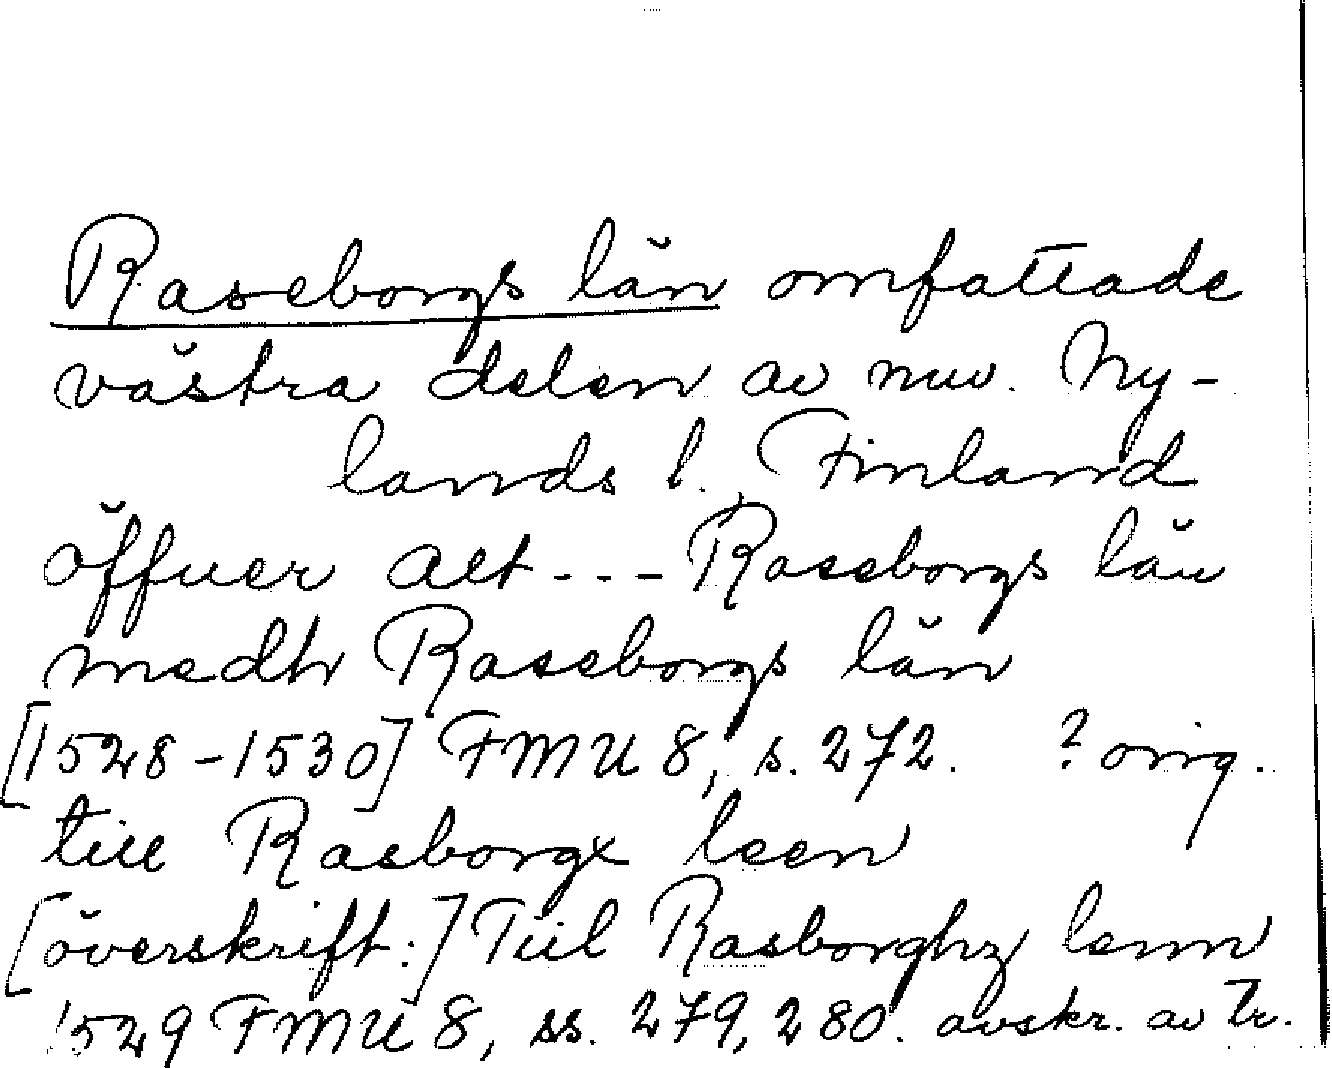 Raseborgs län omfattade
västra delen av nuv. Ny-
lands l. Finland
öffuer alt --- Raseborgs län
medh Raseborgs län
[1528-1530] FMU 8, s. 272. ? orig.
till Rasborgx leen
[överskrift:] Tiil Rasborghz lenn
1529 FMU 8, ss. 279, 280. avskr. av Tr.